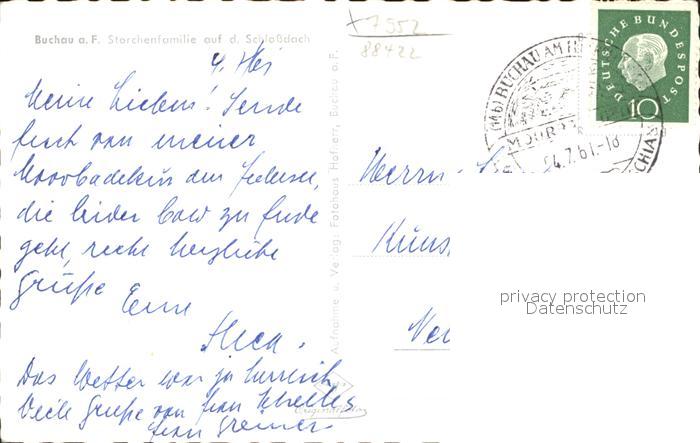 Buchau a.F. Storchenfamilie auf d. Schloßdach
+7952
88422
Meine Lieben! Sende
Euch von meiner
Moorbadekur am Federsee,
die leider bald zu Ende
geht, recht herzliche
Grüße
Eure
Das Wetter war ja herrlich
Viele Grüße von Frau
Frau Greiner
Aufnahme u. Verlag: Fotohaus Hofherr, Buchau a.F.
Originalfoto
Herrn
DEUTSCHE BUNDESPOST
10
(14b) BUCHAU AM
24.7.61.-18
privacy protection
Datenschutz